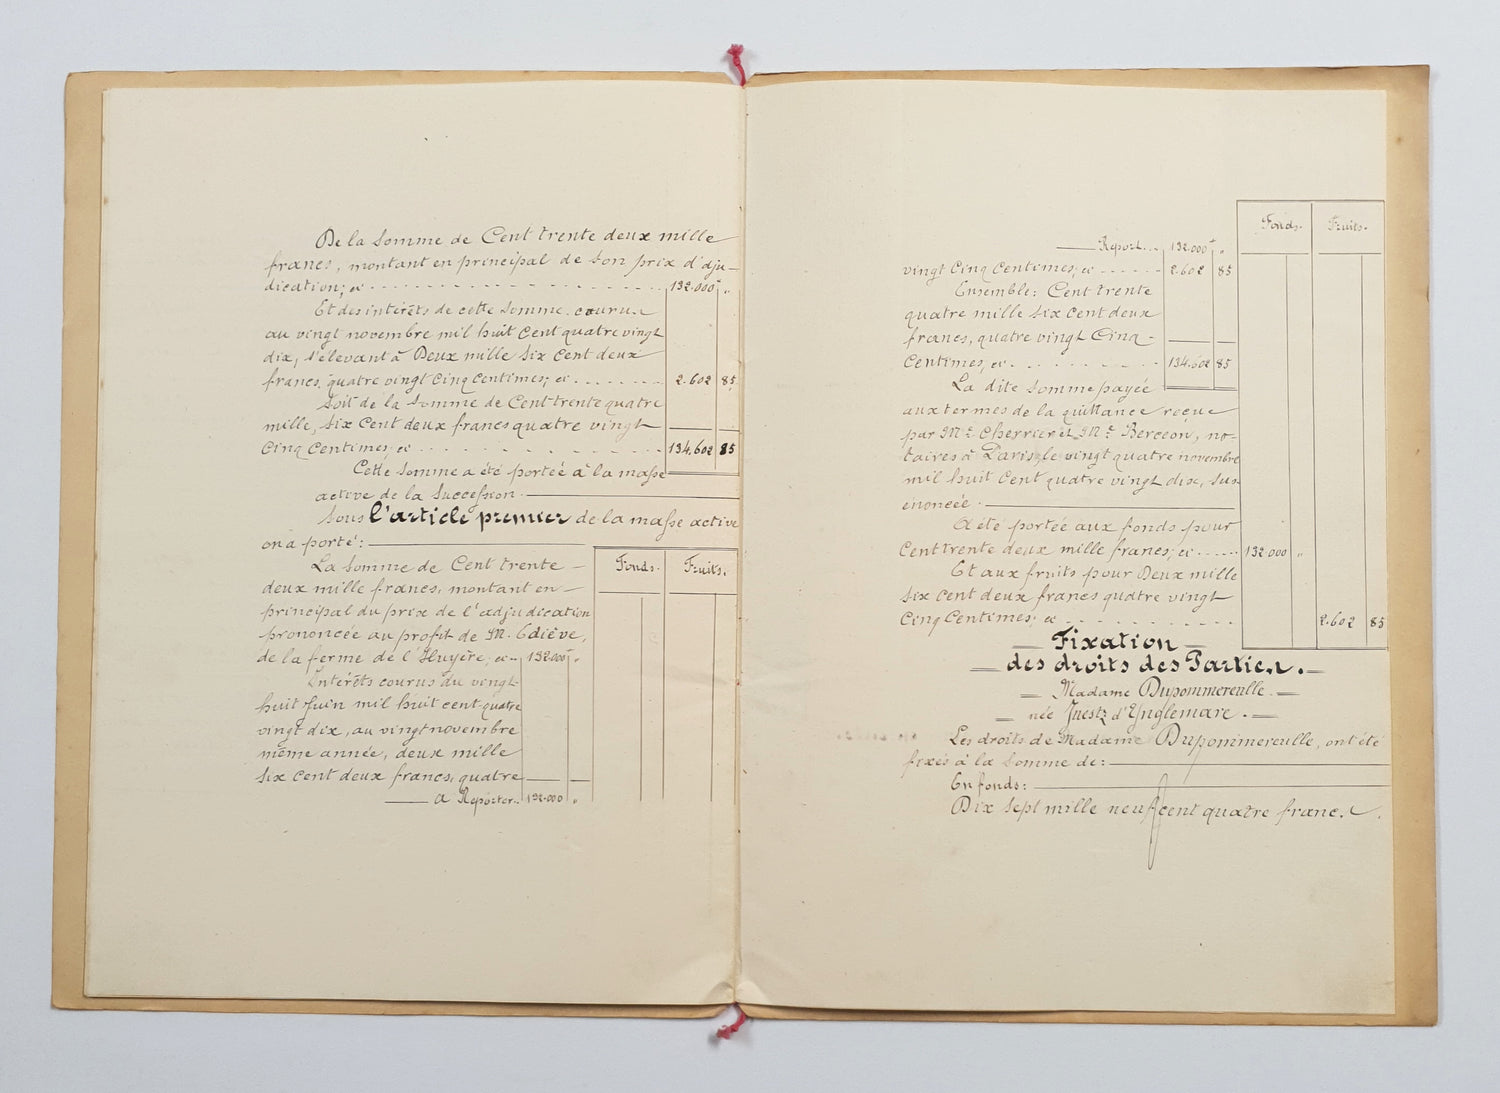 De la somme de Cent trente deux mille
francs, montant en principal de son prix d'adju-
dication; ci 132.000 f "
Et des intérêts de cette somme courus
au vingt novembre mil huit cent quatre vingt
dix, s'élevant à Deux mille six cent deux
francs, quatre vingt cinq centimes; ci 2.602 85
Soit de la somme de Cent trente quatre
mille, six cent deux francs quatre vingt
cinq centimes, ci 134.602 85
Cette somme a été portée à la masse
active de la succession.
Sous l'article premier de la masse active
on a porté:
Fonds. Fruits.
La somme de Cent trente
deux mille francs, montant en
principal du prix de l'adjudication
prononcée au profit de M. Édiève,
de la ferme de l'Huyère, ci 132.000 f "
Intérêts courus du vingt
huit juin mil huit cent quatre
vingt dix, au vingt novembre
même année, deux mille
six cent deux francs, quatre
A Reporter.. 132.000 "
Fonds. Fruits.
Report... 132.000 f "
vingt cinq centimes; ci 2.602 85
Ensemble: Cent trente
quatre mille six cent deux
francs, quatre vingt cinq
centimes, ci 134.602 85
La dite somme payée
aux termes de la quittance reçue
par Me Cherrier et Me Berceon, no-
taires à Paris, le vingt quatre novembre
mil huit cent quatre vingt dix, sus
énoncée.
A été portée aux fonds pour
Cent trente deux mille francs; ci 132.000 "
Et aux fruits pour Deux mille
six cent deux francs quatre vingt
cinq centimes; ci 2.602 85
Fixation
des droits des Parties.
Madame Dupommereulle
née Juest d'Ynglemare.
Les droits de Madame Dupommereulle, ont été
fixés à la somme de:
En fonds:
Dix sept mille neuf cent quatre francs.